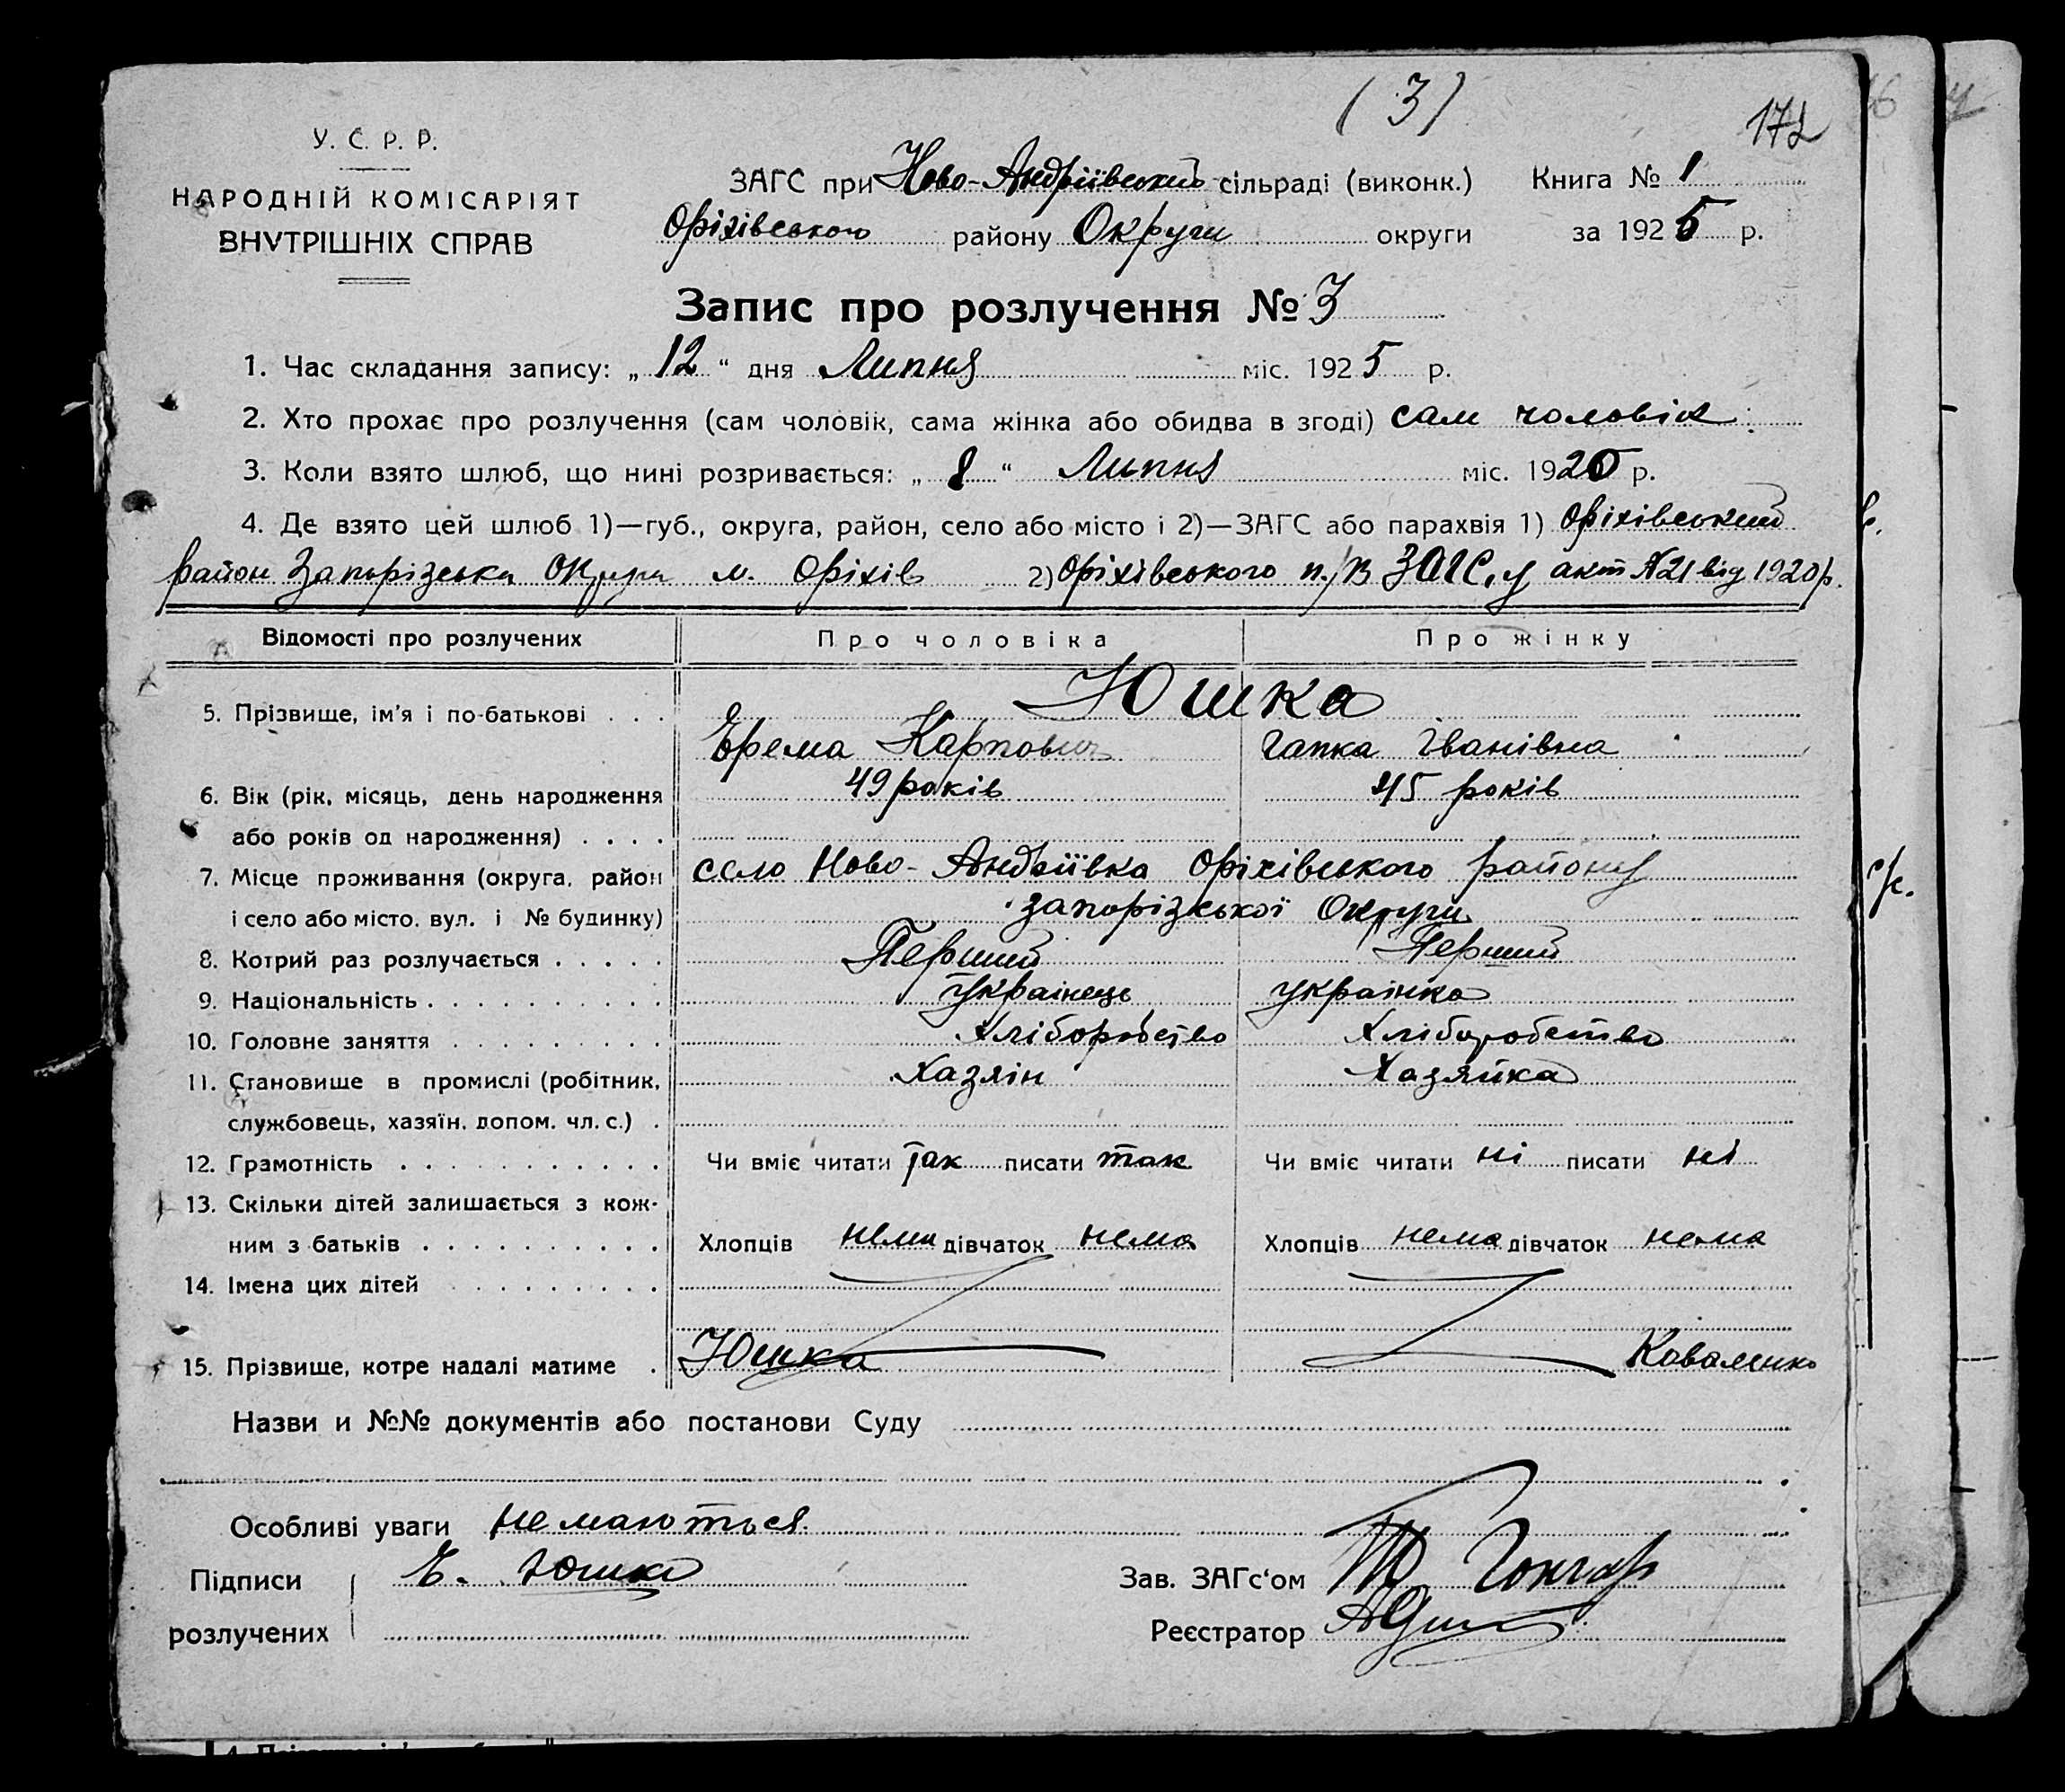 (3)
172
У. С. Р. Р.
НАРОДНІЙ КОМІСАРІЯТ
ВНУТРІШНІХ СПРАВ
ЗАГС при Ново-Андріївський сільраді (виконк.) Книга № 1
Оріхівського району Округи округи за 1925 р.
Запис про розлучення № 3
1. Час складання запису: „12“ дня Липня міс. 1925 р.
2. Хто прохає про розлучення (сам чоловік, сама жінка або обидва в згоді) сам чоловік
3. Коли взято шлюб, що нині розривається: „8“ Липня міс. 1920 р.
4. Де взято цей шлюб 1)—губ., округа, район, село або місто і 2)—ЗАГС або парахвія 1) Оріхівський
район Запорізька Округи м. Оріхів 2) Оріхівського п./в ЗАГС,у акт №21 від 1920 р.
Відомості про розлучених Про чоловіка Про жінку
Юшка
5. Прізвище, ім'я і по-батькові . . .
Єрема Карпович Гапка Іванівна
6. Вік (рік, місяць, день народження 49 років 45 років
або років од народження) . . . .
7. Місце проживання (округа, район село Ново-Андріївка Оріхівського району
і село або місто, вул. і № будинку) запорізської Округи
8. Котрий раз розлучається . . . . . Перший Перший
9. Національність . . . . . . . . . . українець українка
10. Головне заняття . . . . . . . . . Хліборобство Хліборобство
11. Становище в промислі (робітник, Хазяін Хазяйка
службовець, хазяїн, допом. чл. с.) .
12. Грамотність . . . . . . . . . . . Чи вміє читати так писати так Чи вміє читати ні писати ні
13. Скільки дітей залишається з кож-
ним з батьків . . . . . . . . . . Хлопців нема дівчаток нема Хлопців нема дівчаток нема
14. Імена цих дітей . . . . . . . . .
15. Прізвище, котре надалі матиме . Юшка Коваленко
Назви и №№ документів або постанови Суду
Особливі уваги немаються.
Підписи Є. Юшка Зав. ЗАГс‘ом Гончар
розлучених Реєстратор